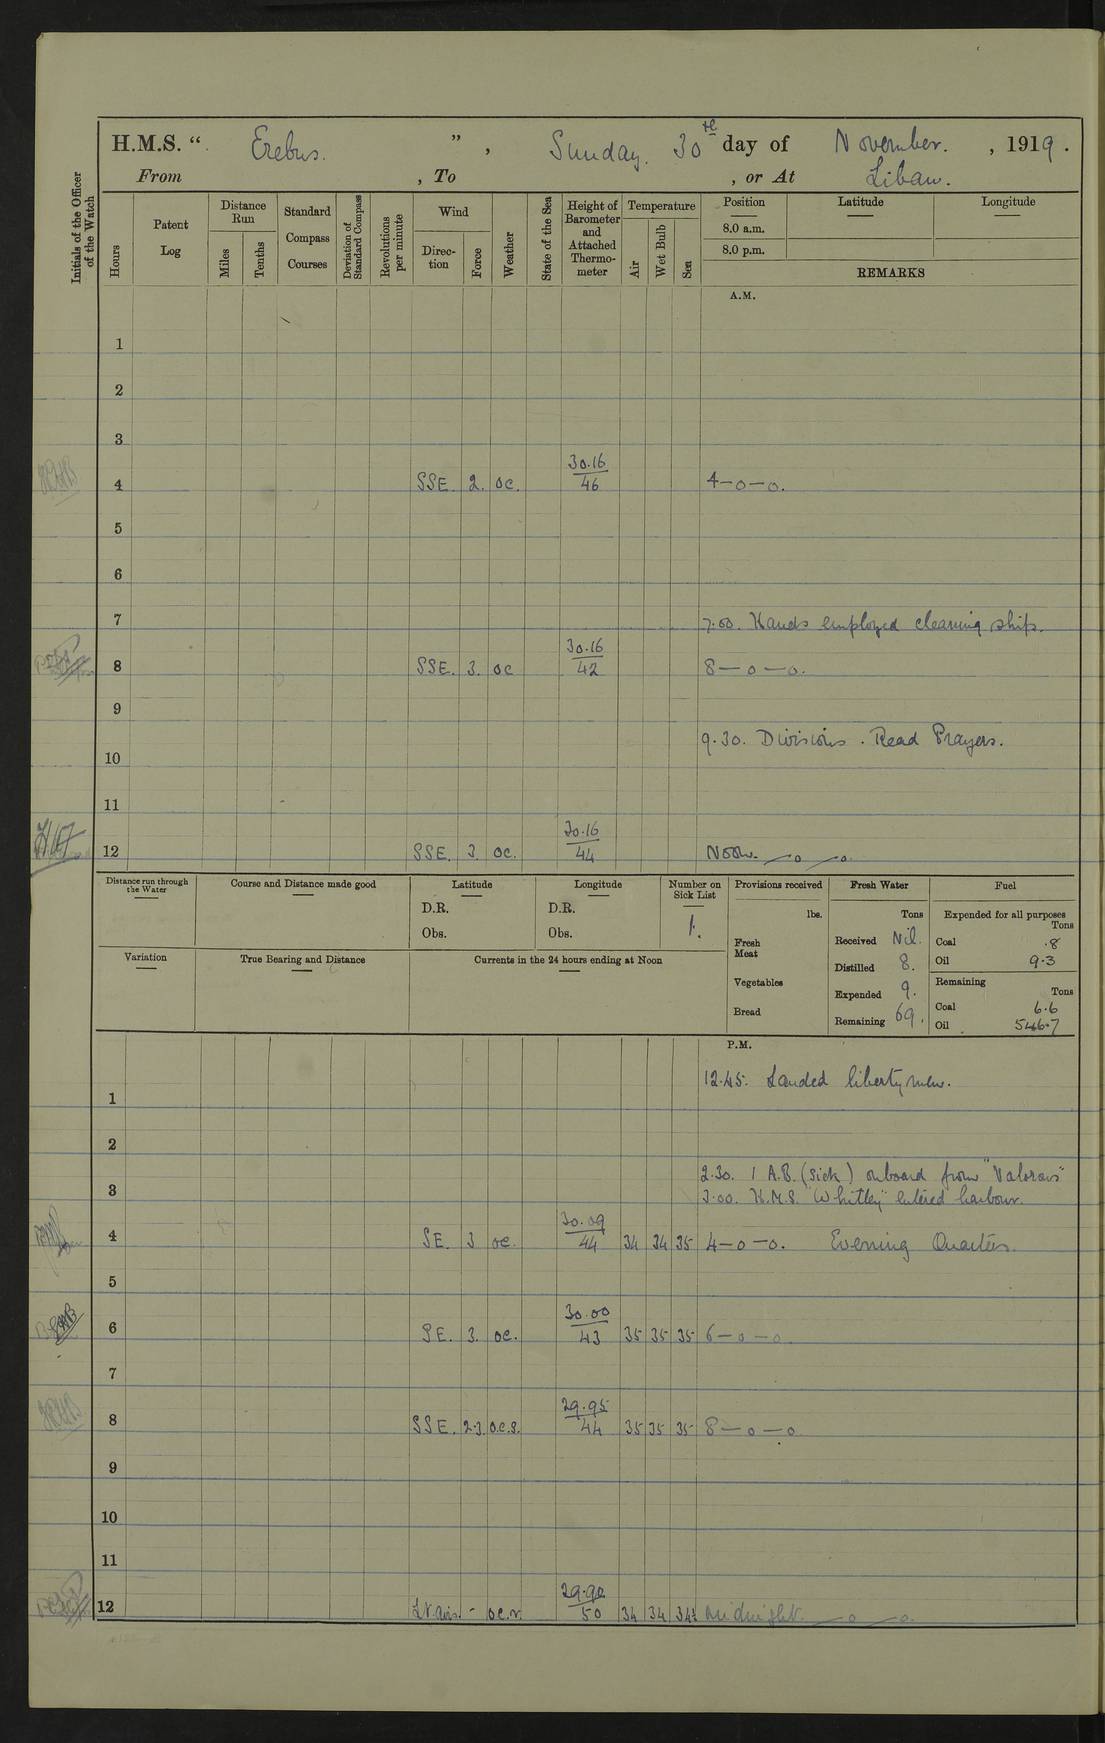 H.M.S. “ Erebus. ” , Sunday. 30th day of November. , 1919.
From , To , or At Libau.
Initials of the Officer of the Watch
Hours
Patent Log
Distance Run
Miles
Tenths
Standard Compass Courses
Deviation of Standard Compass
Revolutions per minute
Wind
Direction
Force
Weather
State of the Sea
Height of Barometer and Attached Thermometer
Temperature
Air
Wet Bulb
Sea
Position Latitude Longitude
8.0 a.m.
8.0 p.m.
REMARKS
A.M.
1
2
3
4 SSE. 2. oc. 30.16 46 4—o—o.
5
6
7 7.00. Hands employed cleaning ship.
8 SSE. 3. oc 30.16 42 8—o—o.
9
9.30. Divisions. Read Prayers.
10
11
12 SSE. 3. oc. 30.16 44 Noon. —o—o.
Distance run through the Water
Course and Distance made good
Latitude
D.R.
Obs.
Longitude
D.R.
Obs.
Number on Sick List
1.
Provisions received
lbs.
Fresh Meat
Vegetables
Bread
Fresh Water
Tons
Received Nil.
Distilled 8.
Expended 9.
Remaining 69.
Fuel
Expended for all purposes
Tons
Coal .8
Oil 9.3
Remaining
Tons
Coal 6.6
Oil 546.7
Variation
True Bearing and Distance
Currents in the 24 hours ending at Noon
P.M.
12.45. Landed liberty men.
1
2
2.30. 1 A.B. (sick) onboard from "Valorous"
3 3.00. H.M.S. "Whitley" entered harbour.
4 SE. 3 oc. 30.09 44 34 34 35 4—o—o. Evening Quarters.
5
6 SE. 3. oc. 30.00 43 35 35 35 6—o—o.
7
8 SSE. 2.3. o.c.s. 29.95 44 35 35 35 8—o—o
9
10
11
12 Lt. airs. - oc.r. 29.90 50 34 34 34½ Midnight. —o—o.